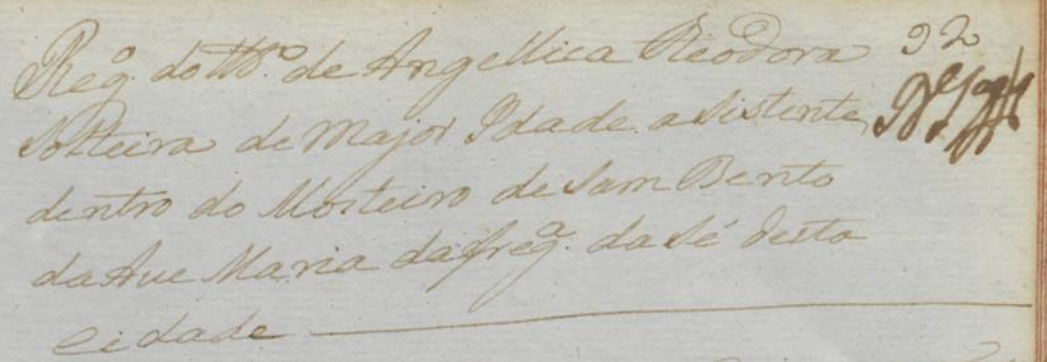 Reg.º do Tt.º de Angellica Theodora 92
Solteira de Major Idade asistente
dentro do Mosteiro de Sam Bento
da Ave Maria da freg.ª da Sé desta
Cidade